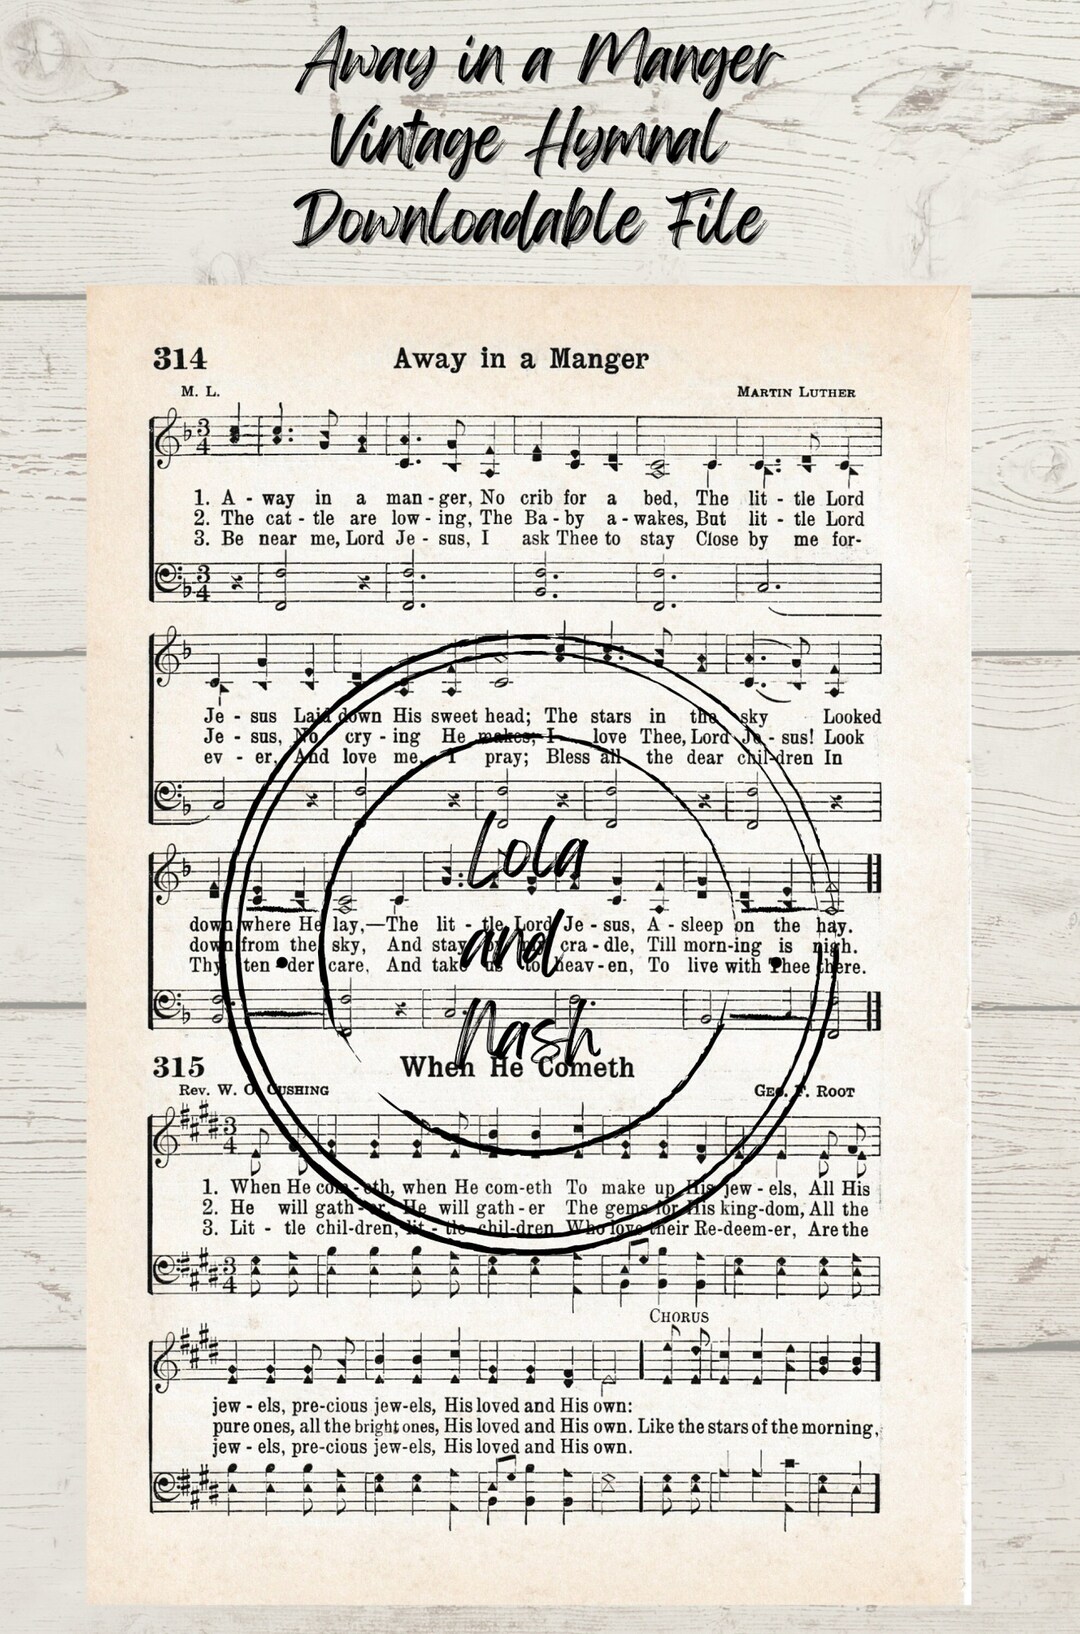 Away in a Manger
Vintage Hymnal
Downloadable File
314 Away in a Manger
M. L. MARTIN LUTHER
1. A - way in a man - ger, No crib for a bed, The lit - tle Lord
2. The cat - tle are low - ing, The Ba - by a - wakes, But lit - tle Lord
3. Be near me, Lord Je - sus, I ask Thee to stay Close by me for-
Je - sus Laid down His sweet head; The stars in the sky Looked
Je - sus, No cry - ing He makes; I love Thee, Lord Je - sus! Look
ev - er, And love me, I pray; Bless all the dear chil-dren In
down where He lay,—The lit - tle Lord Je - sus, A - sleep on the hay.
down from the sky, And stay by my cra - dle, Till morn-ing is nigh.
Thy ten - der care, And take us to heav - en, To live with Thee there.
Lola
and
Nash
315 When He Cometh
REV. W. O. CUSHING GEO. F. ROOT
1. When He com - eth, when He com-eth To make up His jew - els, All His
2. He will gath - er, He will gath - er The gems for His king-dom, All the
3. Lit - tle chil-dren, lit - tle chil-dren Who love their Re-deem-er, Are the
CHORUS
jew - els, pre-cious jew-els, His loved and His own:
pure ones, all the bright ones, His loved and His own. Like the stars of the morning,
jew - els, pre-cious jew-els, His loved and His own.